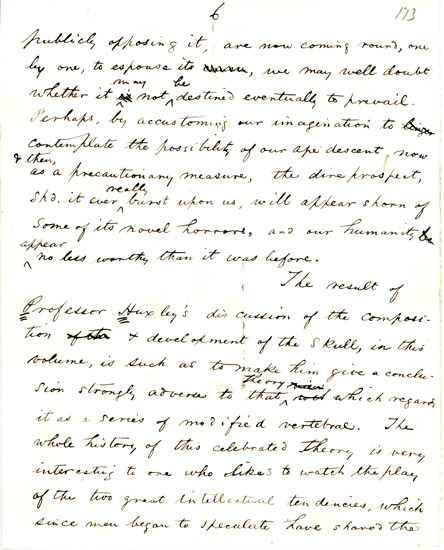 6
173
publicly opposing it, are now coming round, one
by one, to espouse it, we may well doubt
whether it may not be destined eventually to prevail.
Perhaps, by accustoming our imagination to
contemplate the possibility of our ape descent, now
& then,
as a precautionary measure, the dire prospect,
shd. it ever really burst upon us, will appear shorn of
some of its novel horrors, and our humanity
appear
no less worthy than it was before.
The result of
Professor Huxley's discussion of the composi-
tion & development of the Skull, in this
volume, is such as to make him give a conclu-
sion strongly adverse to that theory which regards
it as a series of modified vertebral. The
whole history of this celebrated Theory is very
interesting to one who likes to watch the play
of the two great intellectual tendencies, which
since men began to speculate have shared the